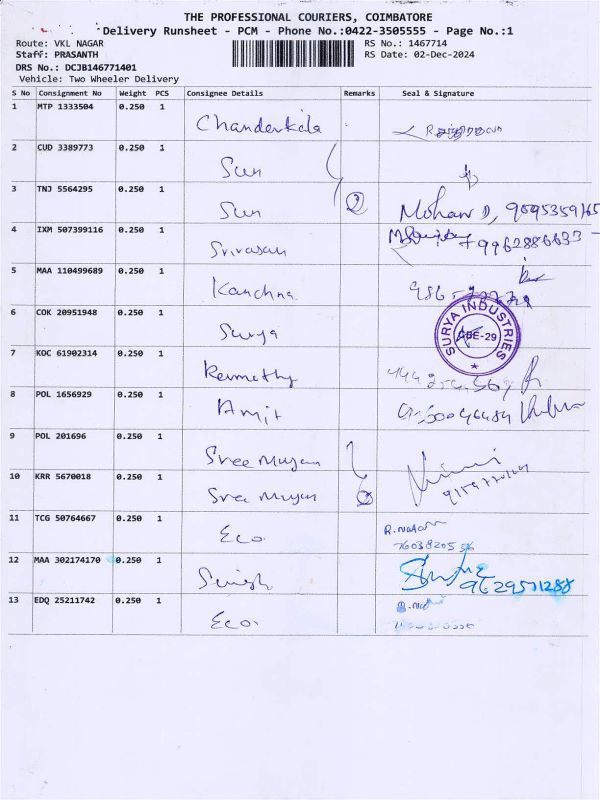 THE PROFESSIONAL COURIERS, COIMBATORE
Delivery Runsheet - PCM - Phone No.:0422-3505555 - Page No.:1
Route: VKL NAGAR RS No.: 1467714
Staff: PRASANTH RS Date: 02-Dec-2024
DRS No.: DCJB146771401
Vehicle: Two Wheeler Delivery
S No Consignment No Weight PCS Consignee Details Remarks Seal & Signature
1 MTP 1333504 0.250 1 Chanderkala
2 CUD 3389773 0.250 1 Sun
3 TNJ 5564295 0.250 1 Sun 2 Mohan D, 9095359165
4 IXM 507399116 0.250 1 Srivasan 9962886633
5 MAA 110499689 0.250 1 Kanchna
6 COK 20951948 0.250 1 Surya SURYA INDUSTRIES CBE-29
7 KOC 61902314 0.250 1
8 POL 1656929 0.250 1 Amit
9 POL 201696 0.250 1 Sree Murgan
10 KRR 5670018 0.250 1 Sree Murgan
11 TCG 50764667 0.250 1 Eco R.natan
12 MAA 302174170 0.250 1 Singh 9629571288
13 EDQ 25211742 0.250 1 Eco.